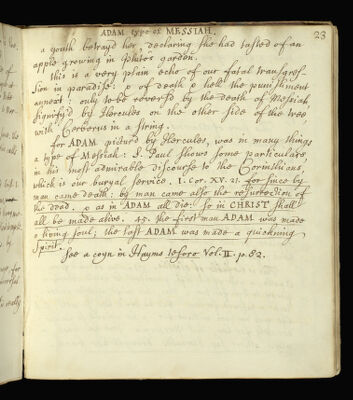 ADAM type of MESSIAH.
23
a youth betrayd her, declaring she had tasted of an
apple growing in Pluto's garden.
this is a very plain echo of our fatal transgres-
sion in paradise: & of death & hell the punishment
annext: only to be reversd by the death of Messiah,
signify'd by Hercules on the other side of the tree,
with Cerberus in a string.
for ADAM pictur'd by Hercules, was in many things
a type of Messiah: S. Paul shows some particulars,
in his most admirable discourse to the Corinthians,
which is our buryal service. I. Cor. XV. 21. for since by
man came death: by man came also the resurrection of
the dead. & as in ADAM all die: so in CHRIST shall
all be made alive. 45. the first man ADAM was made
a living soul; the last ADAM was made a quickning
Spirit.
See a coyn in Hayms tesoro Vol. II. p. 82.